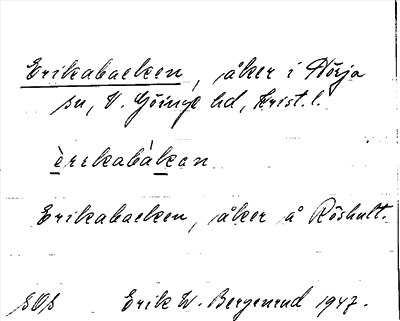 Erikabacken, åker i Hörja
sn, V. Göinge hd, Krist. l.
èrikabàkan
Erikabacken, åker å Röshult.
Erik W. Bergenrud 1947.